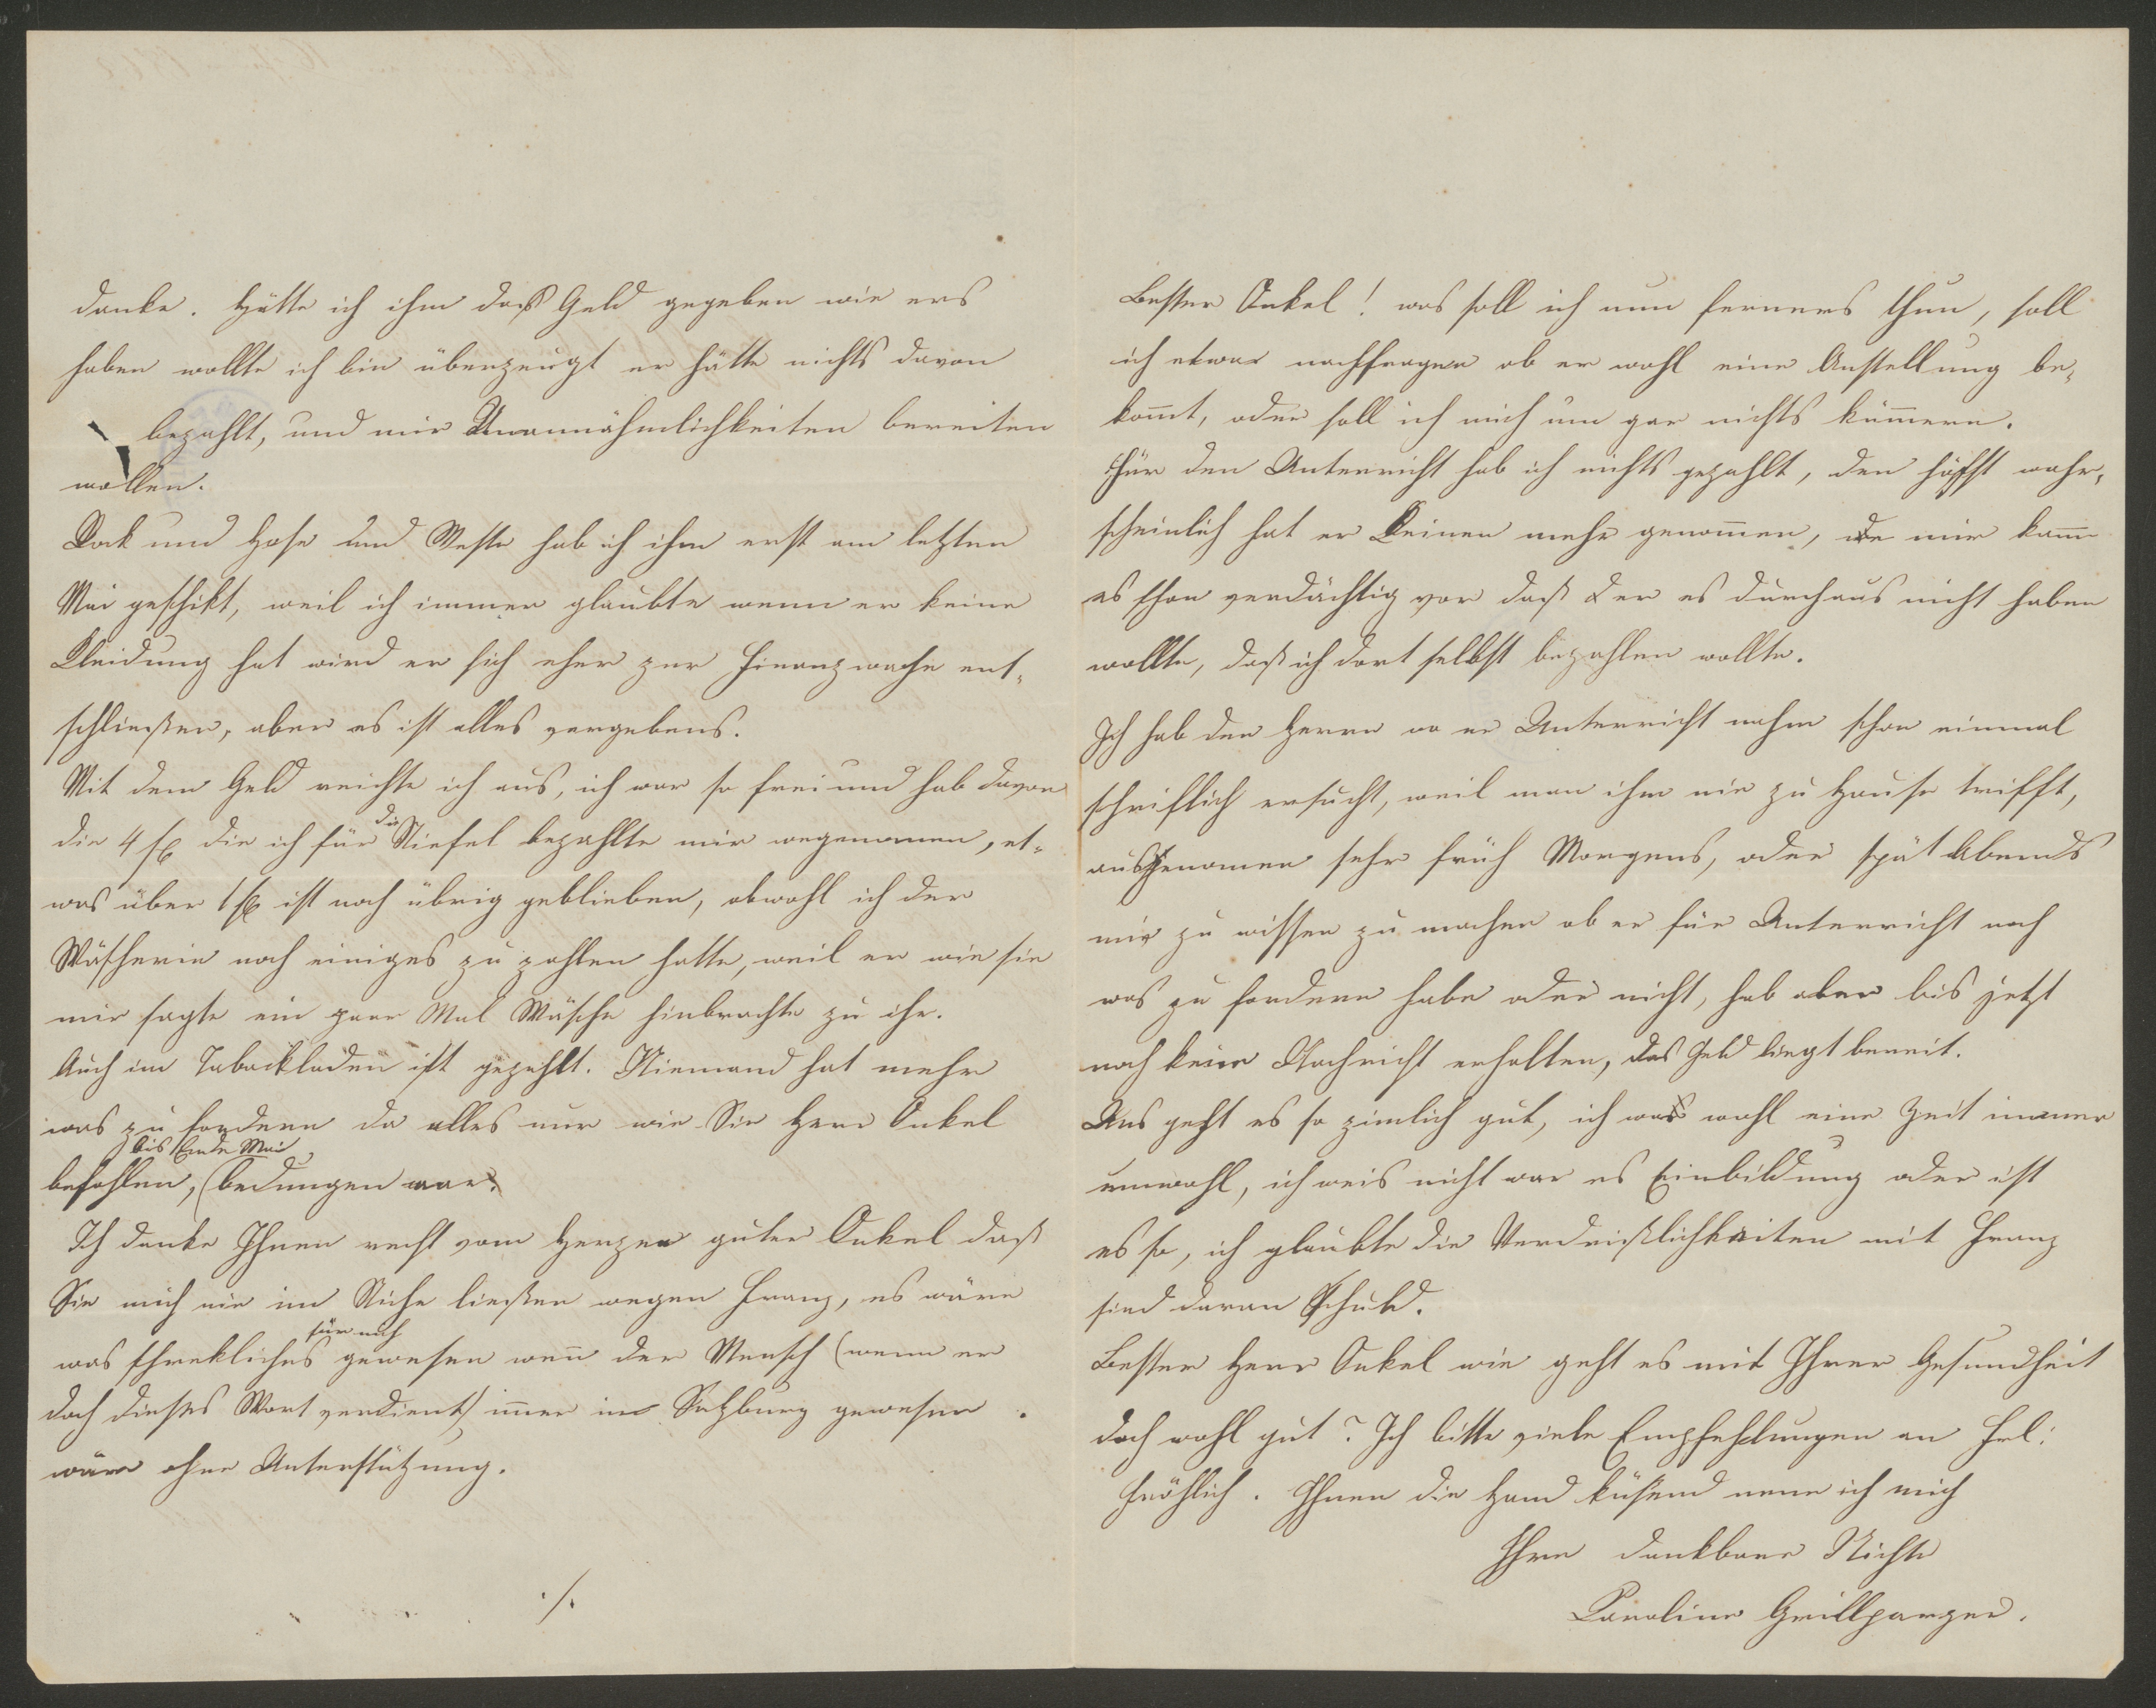 danke. Hätte ich ihm daß Geld gegeben wie ers
haben wollte ich bin überzeugt er hätte nichts davon
bezahlt, und mir Unannähmlichkeiten bereiten
wollen.
Rock und Hose und Weste hab ich ihm erst am letzten
Mai geschikt, weil ich immer glaubte wenn er keine
Kleidung hat wird er sich eher zur Finanzwache ent-
schließen, aber es ist alles vergebens.
Mit dem Geld reichte ich aus, ich war so frei und hab davon
die 4 fl die ich für die Stiefel bezahlte mir wegenomen, et-
was über 1 fl ist noch übrig geblieben, obwohl ich der
Wäscherin noch einiges zu zahlen hatte, weil er wie sie
mir sagte ein paar Mal Wäsche hinbrachte zu ihr.
Auch im Tabackladen ist gezahlt. Niemand hat mehr
was zu fordern da alles nur wie Sie Herr Onkel
befohlen, (bis Ende Mai bedungen war.
Ich danke Ihnen recht vom Herzen guter Onkel daß
Sie mich nie im Stiche ließen wegen Franz, es wäre
was schrekliches für mich gewesen wen̄ der Mensch (wenn er
doch dieses Wort verdient) im̄er in Salzburg gewesen
wäre ohne Unterstützung.
./.
Bester Onkel! was soll ich nun ferners thun, soll
ich etwas nachfragen ob er wohl eine Anstellung be-
kom̄t, oder soll ich mich um gar nichts küm̄ern.
Für den Unterricht hab ich nichts gezahlt, den höchst wahr-
scheinlich hat er keinen mehr genom̄en, mir kam
es schon verdächtig vor daß er es durchaus nicht haben
wollte, daß ich dort selbst bezahlen wollte.
Ich hab den Herrn wo er Unterricht nahm schon einmal
schriftlich ersucht, weil man ihm nie zu Hause trifft,
ausgenomen sehr früh Morgens, oder spät Abends
mir zu wissen zu machen ob er für Unterricht noch
was zu fordern habe oder nicht, hab aber bis jetzt
noch keine Nachricht erhalten, das Geld liegt bereit.
Uns geht es so zimlich gut, ich war wohl eine Zeit immer
unwohl, ich weis nicht war es Einbildung oder ist
es so, ich glaubte die Verdrießlichkeiten mit Franz
sind daran Schuld.
Bester Herr Onkel wie geht es mit Ihrer Gesundheit
doch wohl gut? Ich bitte viele Empfehlungen an Frl:
Fröhlich. Ihnen die Hand küßend nene ich mich
Ihre dankbare Nichte
Karoline Grillparzer.